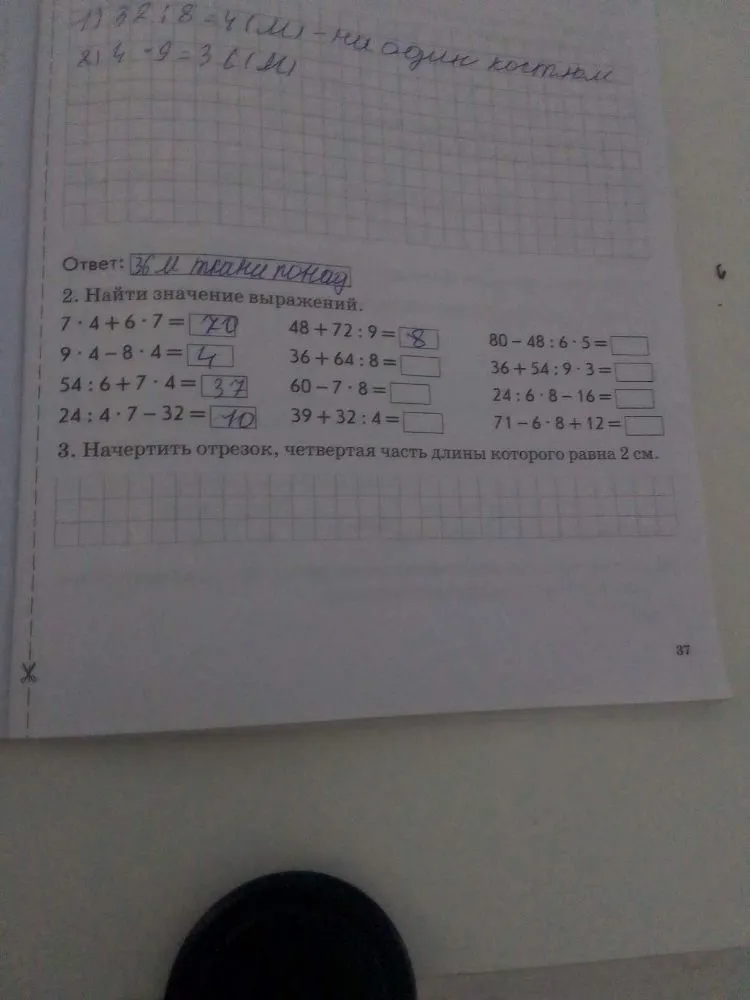 1) 32 : 8 = 4 (м) - на один костюм
2) 4 · 9 = 36 (м)
Ответ: 36 м ткани понад
2. Найти значение выражений.
7 · 4 + 6 · 7 = 70 48 + 72 : 9 = 8 80 – 48 : 6 · 5 =
9 · 4 – 8 · 4 = 4 36 + 64 : 8 = 36 + 54 : 9 · 3 =
54 : 6 + 7 · 4 = 37 60 – 7 · 8 = 24 : 6 · 8 – 16 =
24 : 4 · 7 – 32 = 10 39 + 32 : 4 = 71 – 6 · 8 + 12 =
3. Начертить отрезок, четвертая часть длины которого равна 2 см.
37